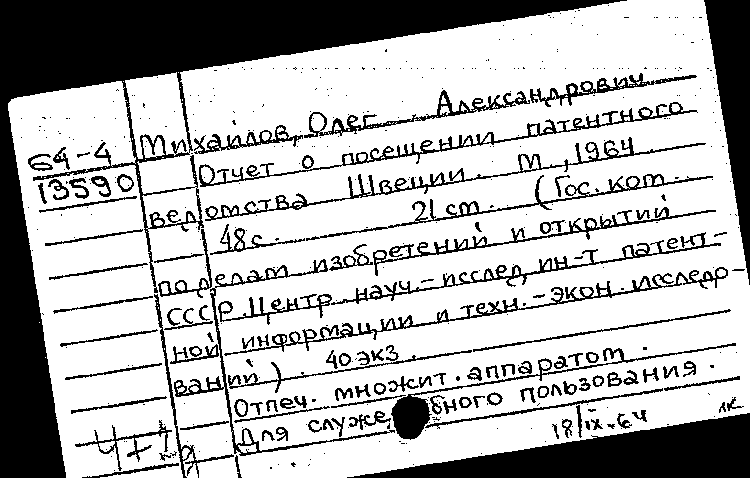 64-4
13590
Михайлов, Олег Александрович
Отчет о посещении патентного
ведомства Швеции. М., 1964.
48 с. 21 cm. (Гос. ком.
по делам изобретений и открытий
СССР. Центр. науч.-исслед. ин-т патент-
ной информации и техн.-экон. исследо-
ваний). 40 экз.
Отпеч. множит. аппаратом.
Для служебного пользования.
18/IX-64